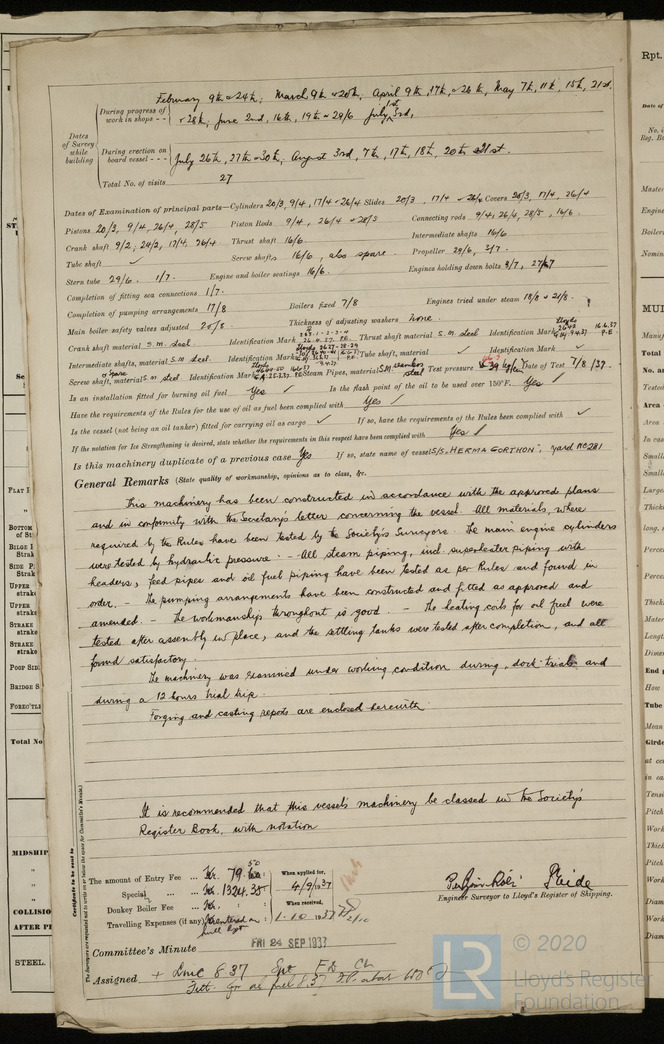 February 9th & 24th; March 9th & 20th, April 9th, 17th, & 26th, May 7th, 11th, 15th, 21st.
During progress of work in shops - -
& 28th, June 2nd, 16th, 19th & 29/6 July 1st 3rd,
Dates of Survey while building
During erection on board vessel - - -
July 26th, 27th & 30th, August 3rd, 7th, 17th, 18th, 20th & 21st.
Total No. of visits 27
Dates of Examination of principal parts—Cylinders 20/3, 9/4, 17/4 & 26/4 Slides 20/3, 17/4 & 26/4 Covers 20/3, 17/4, 26/4
Pistons 20/3, 9/4, 26/4, 28/5 Piston Rods 9/4, 26/4 & 28/5 Connecting rods 9/4, 26/4, 28/5, 16/6.
Crank shaft 9/2, 24/2, 17/4, 26/4 Thrust shaft 16/6. Intermediate shafts 16/6
Tube shaft ✓ Screw shaft 16/6, also spare. Propeller 29/6, 3/7.
Stern tube 29/6. 1/7. Engine and boiler seatings 16/6. Engines holding down bolts 3/7, 27/7
Completion of fitting sea connections 1/7.
Completion of pumping arrangements 17/8 Boilers fixed 7/8 Engines tried under steam 18/8 & 21/8.
Main boiler safety valves adjusted 20/8 Thickness of adjusting washers None.
Crank shaft material S.M. steel Identification Mark 26.4.37. P.E. Thrust shaft material S.M. steel Identification Mark Lloyds 16.6.37 P.E.
Intermediate shafts, material S.M. steel. Identification Marks Lloyds Tube shaft, material ✓ Identification Mark ✓
Screw shaft, material S.M. steel Identification Mark Lloyds Steam Pipes, material S.M. steel Test pressure 39 kg/cm Date of Test 7/8/37.
& spare
Is an installation fitted for burning oil fuel Yes ✓ Is the flash point of the oil to be used over 150°F. Yes ✓
Have the requirements of the Rules for the use of oil as fuel been complied with Yes ✓
Is the vessel (not being an oil tanker) fitted for carrying oil as cargo ✓ If so, have the requirements of the Rules been complied with ✓
If the notation for Ice Strengthening is desired, state whether the requirements in this respect have been complied with Yes ✓
Is this machinery duplicate of a previous case Yes If so, state name of vessel S/S. "HERMA GORTHON", yard No 281
General Remarks (State quality of workmanship, opinions as to class, &c.
This machinery has been constructed in accordance with the approved plans
and in conformity with the Secretary's letter concerning the vessel. All materials, where
required by the Rules have been tested by the Society's Surveyors. The main engine cylinders
were tested by hydraulic pressure. - All steam piping, incl. superheater piping with
headers, feed pipes and oil fuel piping have been tested as per Rules and found in
order. - The pumping arrangements have been constructed and fitted as approved and
amended. - The workmanship throughout is good. - The heating coils for oil fuel were
tested after assembly in place, and the settling tanks were tested after completion, and all
found satisfactory.
The machinery was examined under working condition during dock trials and
during a 12 hours trial trip.
Forging and casting reports are enclosed herewith.
It is recommended that this vessel's machinery be classed in the Society's
Register Book, with notation
Certificate to be sent to
The Surveyors are requested not to write on or below the space for Committee's Minute.
The amount of Entry Fee ... Kr. 79.50 When applied for,
Special ... Kr. 1324.35 4/9 1937
Donkey Boiler Fee ... Kr. : When received,
Travelling Expenses (if any) entered on hull Rpt 1.10 1937
Engineer Surveyor to Lloyd's Register of Shipping.
Committee's Minute FRI 24 SEP 1937
Assigned + LMC 8.37 Spt FD CL
Fitt. for oil fuel 8.37 F.P. above 150°F
LR
© 2020
Lloyd's Register
Foundation
Rpt.
Date of
No. in
Reg. Bo
Master
Engine
Boiler
Nomin
MUL
Manuf
Total
No. a
Tested
Area
Area
In cas
Small
Small
Large
Thick
long.
Perce
Perce
Thick
Mater
Length
Dimen
End p
How
Tube
Mean
Girde
at cen
in ca
Tensi
Pitch
Work
Thick
Pitch
Work
Thick
Diam
Work
Diam
FLAT
BOTTOM
of St
BILGE
Strak
SIDE P
Strak
UPPER
strake
UPPER
strake
STRAKE
strake
STRAKE
strake
POOP SID
BRIDGE S
FORECTLE
Total No
MIDSHIP
"
"
COLLISIO
AFTER P
"
STEEL.